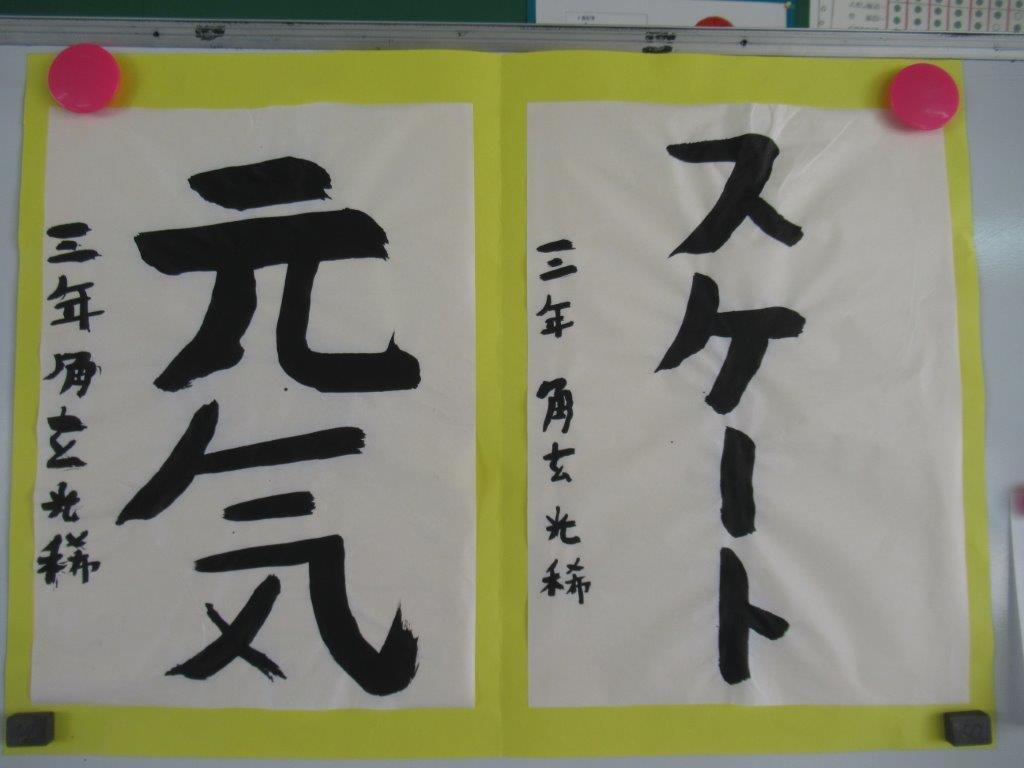 スケート
三年 角玄光稀
元気
三年 角玄光稀